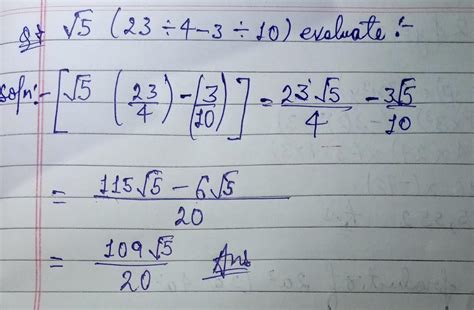 Q1 √5 (23 ÷ 4 – 3 ÷ 10) evaluate :-
Soln:- [√5 (23/4) – (3/10)] = 23√5/4 – 3√5/10
= 115√5 – 6√5/20
= 109√5/20 Ans